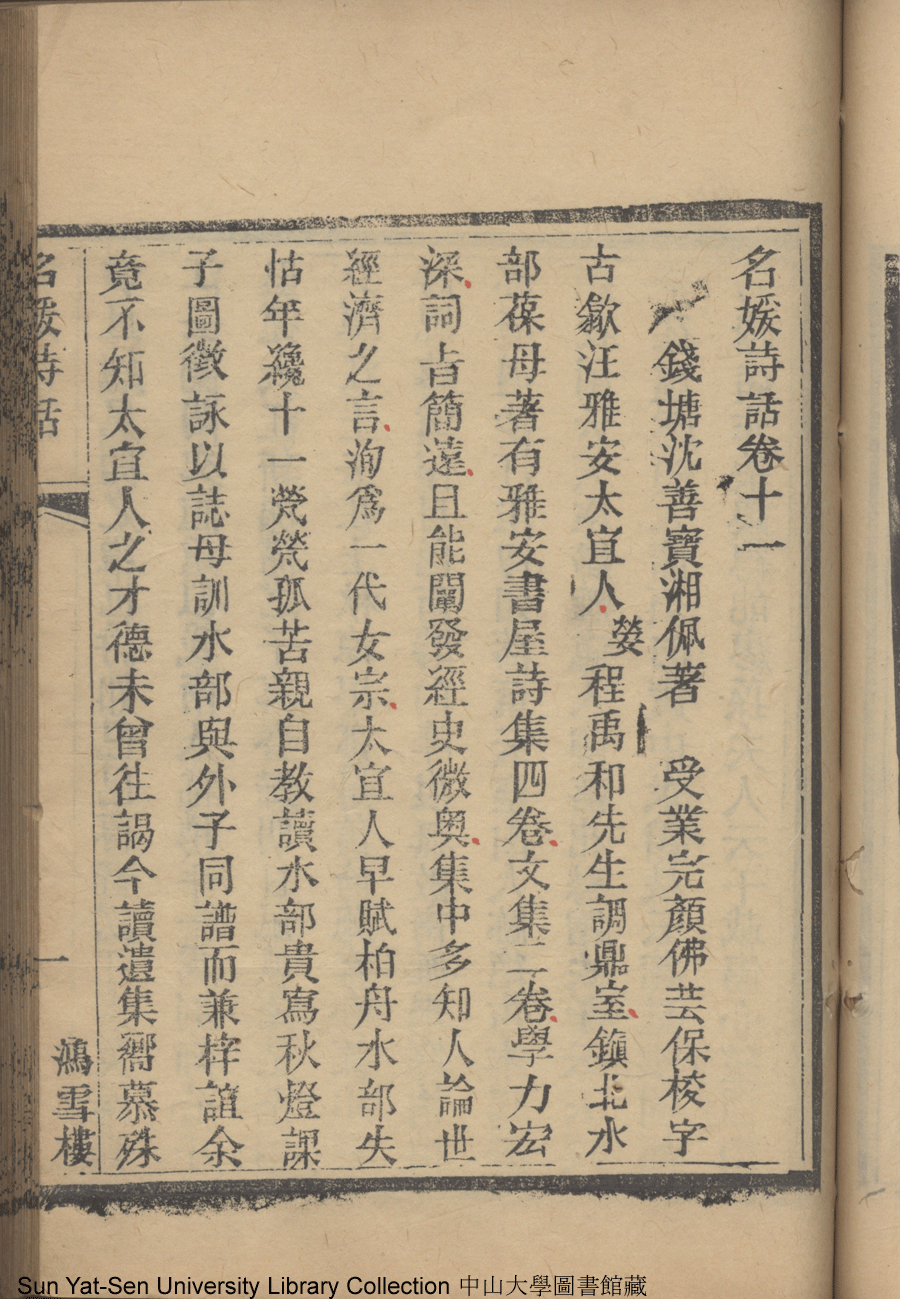 名媛詩話卷十一
錢塘沈善寶湘佩著 受業完顏佛芸保校字
古歙汪雅安太宜人嫈程禹和先生調鼎室鎮北水
部葆母著有雅安書屋詩集四卷文集二卷學力宏
深詞旨簡遠且能闡發經史微奧集中多知人論世
經濟之言洵爲一代女宗太宜人早賦柏舟水部失
怙年纔十一煢煢孤苦親自教讀水部貴寫秋燈課
子圖徵詠以誌母訓水部與外子同譜而兼梓誼余
竟不知太宜人之才德未曾往謁今讀遺集嚮慕殊
名媛詩話 一 鴻雪樓
Sun Yat-Sen University Library Collection 中山大學圖書館藏